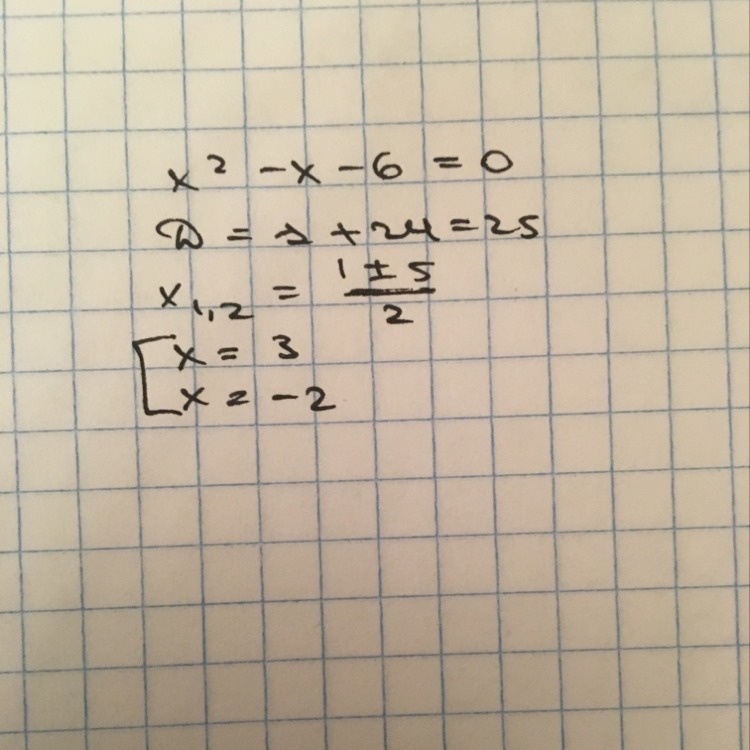 x² - x - 6 = 0
D = 1 + 24 = 25
x₁,₂ = (1 ± 5)/2
[ x = 3
x = -2